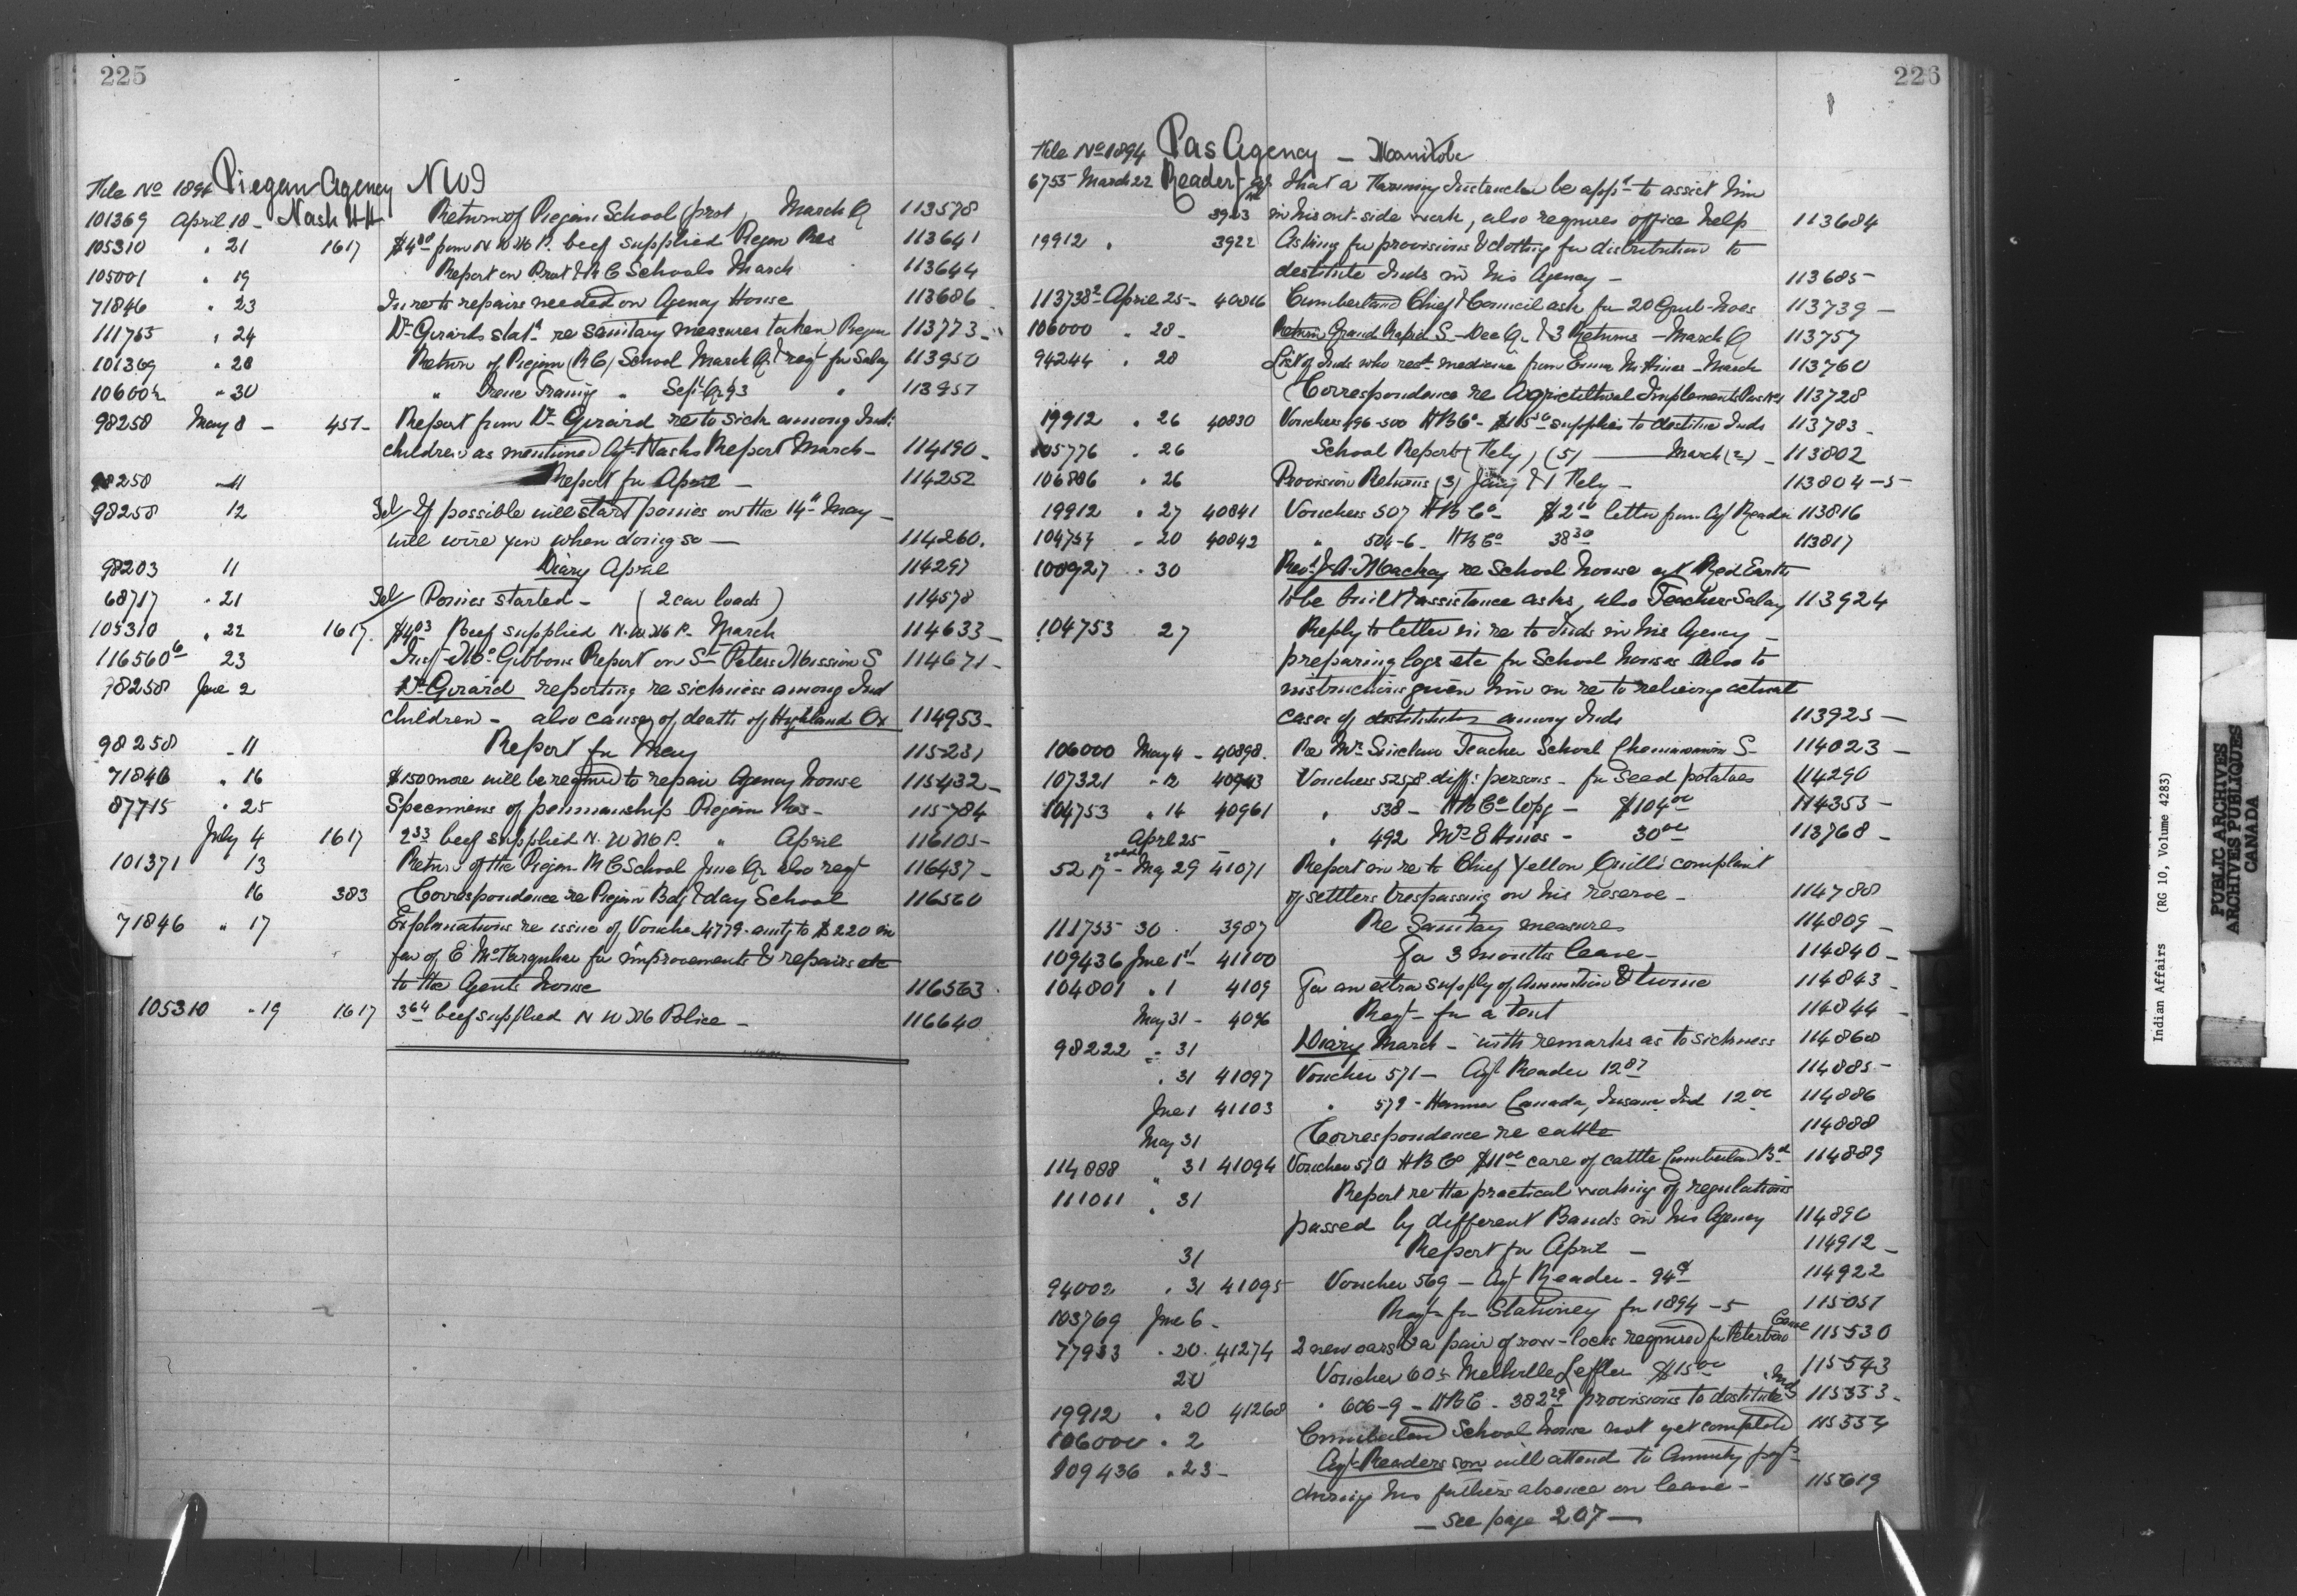 225
File No 1894 Piegan Agency NWT
101369 April 18 - Nash HH Return of Piegan School (prot) March Q 113578
105310 " 21 1617 $4.00 from N.W.M.P. beef supplied Piegan Res 113641
105001 " 19 Report on Prot & R C Schools March 113644
71846 " 23 In re to repairs needed on Agency House 113686
111755 " 24 Dr Girards stat. re sanitary measures taken Piegan 113773
101369 " 28 Return of Piegan (R C) School March Q. & reqt for Salary 113950
" 30 " Sept Q 93 " 113951
98258 May 8 - 451- Report from Dr Girard re to sick among Ind:
children as mentioned Agt Nash's Report March - 114190
98258 - 11 Report for April - 114252
98258 12 Tel/ If possible will start ponies on the 14th May -
will wire you when doing so - 114260.
98203 11 Diary April 114297
68717 " 21 Tel/ Ponies started - (2 car loads) 114578
105310 " 22 1617. Beef supplied N.W.M.P. March 114633
116560 23 Insp McGibbons Report on St Peters Mission S 114671
98258 June 2 Dr Girard reporting re sickness among Ind
children - also causes of death of Highland Ox 114953-
98258 - 11 Report for May 115231
71846 " 16 $150 more will be required to repair Agency house 115432-
87715 " 25 Specimens of penmanship Piegan Res - 115784
July 4 1617 2.53 beef supplied N.W.M.P. " April 116105-
101371 13 Return of the Piegan R C School June Q. also reqt 116437-
16 383 Correspondence re Piegan Bdg & day School 116560
71846 " 17 Explanations re issue of Voucher 4779. amtg to $220 in
fav of E McFarquhar for improvements & repairs etc
to the Agents house 116563
105310 " 19 1617 3.64 beef supplied N W M Police - 116640
226
File No 1894 Pas Agency - Manitoba
6755 March 22 Reader Agt that a Farming Instructor be appt to assist him
in his out-side work, also requires office help 113684
19912 " 3922 Asking for provisions & clothing for distribution to
destitute Inds in his Agency - 113685-
113738 April 25- 40816 Cumberland Chief & Council ask for 20 Grub-hoes 113739-
106000 " 28- Return Grand Rapids S - Dec Q. & 3 Returns - March Q 113757
94244 " 28 List of Inds who rect medicine from - March 113760
Correspondence re Agricultural Implements Pas 113728
19912 " 26 40830 Vouchers 496-500 HBCo - supplies to destitute Inds 113783-
105776 " 26 School Reports (5) - March 113802
106886 " 26 Provision Returns (3) Jany & 1 - 113804-5-
19912 " 27 40841 Vouchers 507 HBCo - $2.10 letter from Agt Reader 113816
104757 " 20 40842 " 504-6 - HBCo 38.30 113817
100927 " 30 Revd J. A. Mackay re School house at Red Earth
to be built & assistance asks, also Teachers Salary 113924
104753 27 Reply to letter in re to Inds in his Agency -
preparing logs etc for School houses also to
instructions given him in re to relieving actual
cases of destitution among Inds 113925-
106000 May 4 - 40898. Re Mr Sinclair Teacher School Chemawawin S- 114023-
107321 " 12 40943 Vouchers diff: persons - for seed potatoes 114290
104753 " 14 40961 " 538 - HBCo Wpg - $104.00 114353-
April 25 " 492 Mrs E Hines - 30.00 113768-
5217 - May 29 41071 Report in re to Chief Yellow Quills complaint
of settlers trespassing on his reserve - 114788
111755 30 3987 Re Sanitary measures 114809-
109436 June 1st 41100 For 3 months leave - 114840-
104801 " 1 4109 For an extra supply of Ammunition & twine 114843
May 31 - 4096 Reqt for a Tent 114844
98222 " 31 Diary March - with remarks as to sickness 114868
" 31 41097 Voucher 571 - Agt Reader 12.87 114885-
June 1 41103 " 579 - Canada, Insane Ind 12.00 114886
May 31 Correspondence re cattle 114888
114888 " 31 41094 Voucher 570 HBCo $11.00 care of cattle Cumberland Bd 114889
111011 " 31 Report re the practical working of regulations
passed by different Bands in his Agency 114890
31 Report for April - 114912-
94002 " 31 41095 Voucher 569 - Agt Reader - 114922
103769 June 6 - Reqt for Stationery for 1894-5 115051
77933 " 20. 41274 2 new oars & a pair of row-locks required for Peterboro Canoe 115530
20 Voucher 605 Melville Leffler $15.00 115543
19912 " 20 41268 " 606-9 - HBC - 382.29 provisions to destitute Inds 115553-
106000 " 2 Cumberland School house not yet completed 115554
109436 " 23- Agt Readers son will attend to Annuity payts
during his fathers absence on leave - 115619
- see page 207 -
Indian Affairs (RG 10, Volume 4283)
PUBLIC ARCHIVES
ARCHIVES PUBLIQUES
CANADA